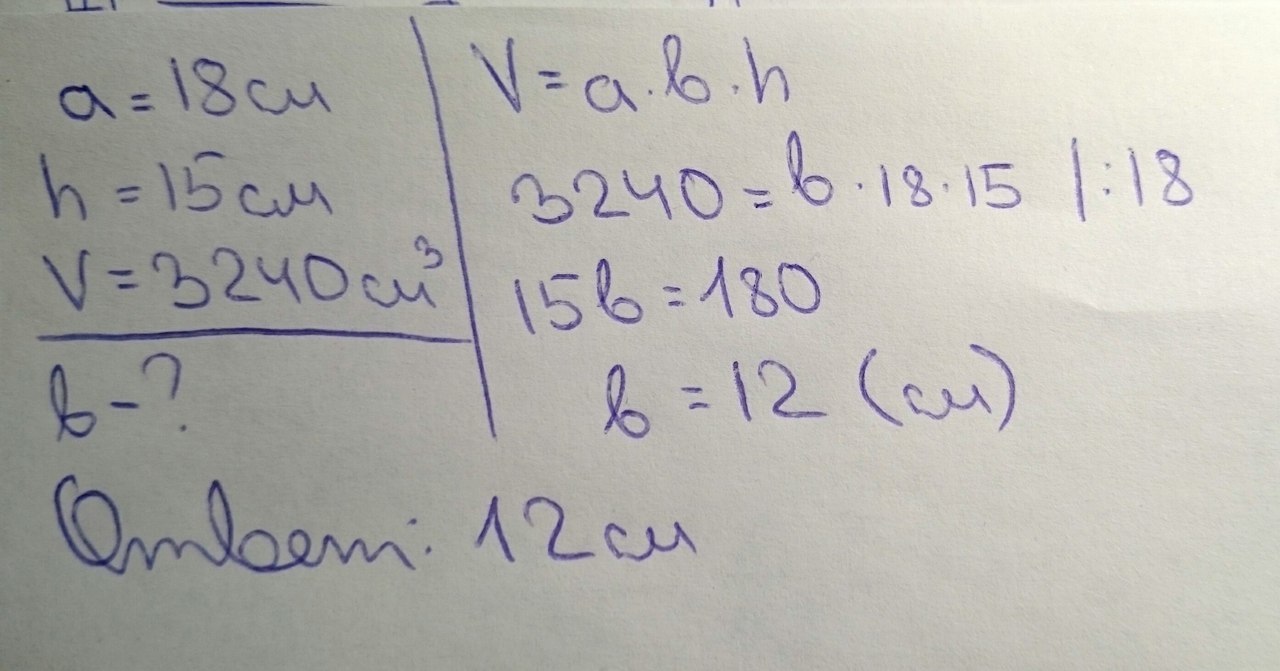 a = 18 см
h = 15 см
V = 3240 см³
b - ?
V = a · b · h
3240 = b · 18 · 15 | : 18
15b = 180
b = 12 (см)
Ответ: 12 см